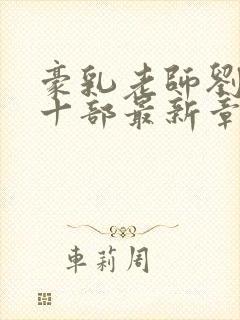 豪乳老師劉
十部最新章
車莉周